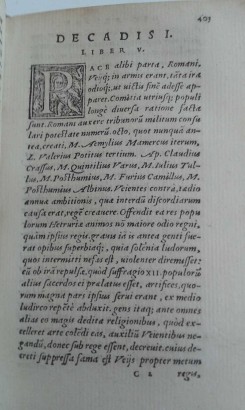 409
DECADIS I.
LIBER V.
PACE alibi parta, Romani,
Veijq; in armis erant, tāta ira
odioq;, ut uictis finē adesse ap
pareret. Comitia utriusq; populi
longè diuersa ratione facta
sunt. Romani auxere tribunorū militum consu
lari potestate numerū. octo, quot nunquam an=
tea, creati, M. Aemylius Mamercus iterum,
L. Valerius Potitus tertium. Ap. Claudius
Crassus, M. Quintilius Varus, M. Iulius Iul=
lus, M. Posthumius, M. Furius Camillus, M.
Posthumius Albinus. Veientes contrà, tædio
annuæ ambitionis, quæ interdū discordiarum
causa erat, regē creauere. Offendit ea res popu
lorum Hetruriæ animos no maiore odio regni,
quàm ipsius regis. grauis iam is antea genti fue
rat opibus superbiaq;, quia solēnia ludorum,
quos intermitti nefas est, uiolenter diremisset:
cū ob irā repulsæ, quòd suffragio XII. populorū
alius sacerdos ei prælatus esset, artifices, quo=
rum magna pars ipsius serui erant, ex medio
ludicro repētè abduxit. gens itaq; ante omneis
alias eo magis dedita religionibus, quòd ex=
celleret arte colēdi eas, auxiliū Veientibus ne=
gandū, donec sub rege essent, decreuit. cuius de=
creti suppressa fama est Veijs propter metum
regis,